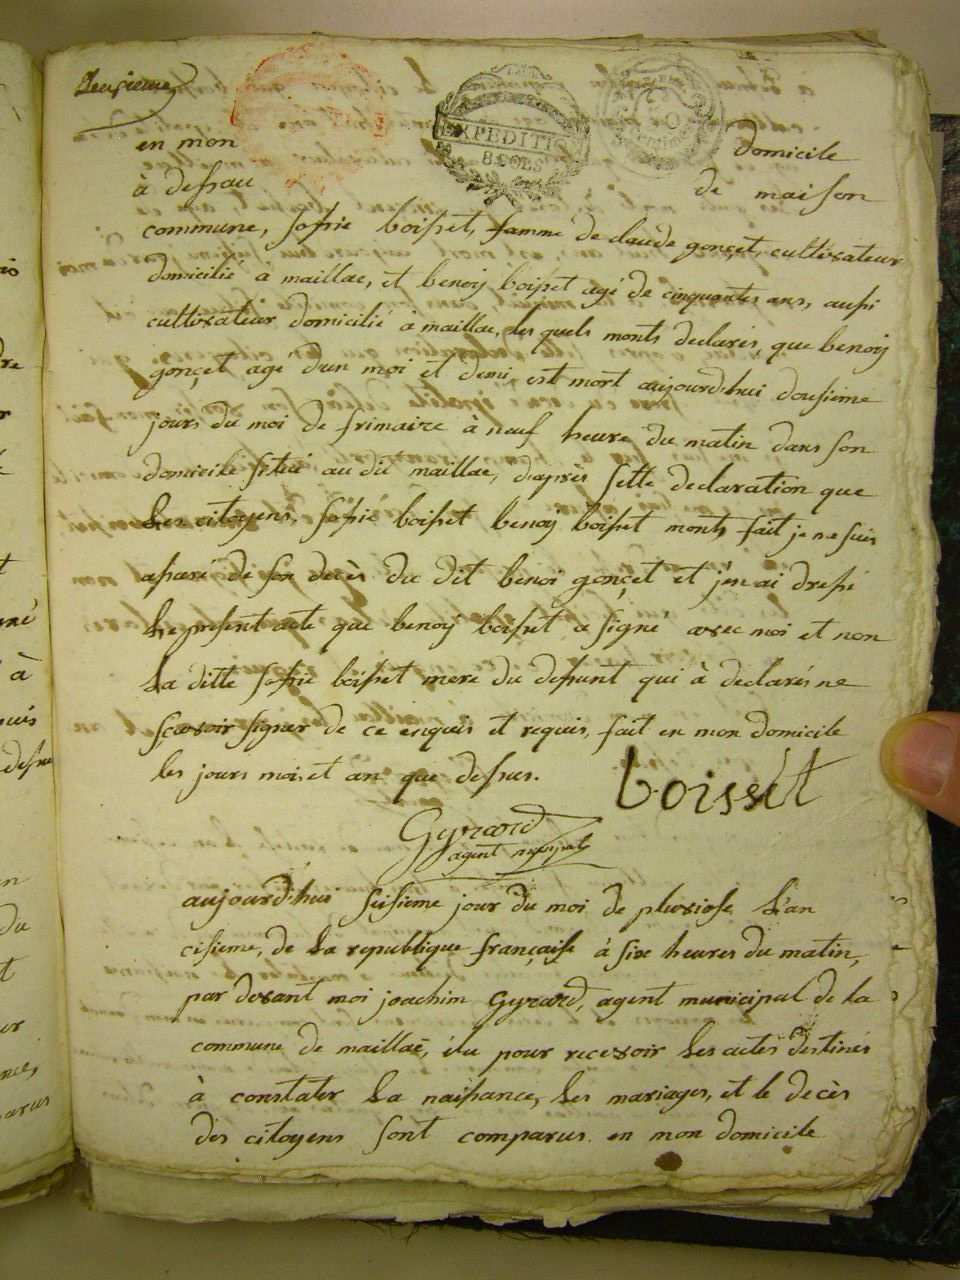 Deuxieme
EXPEDITION
8 SOLS
en mon domicile
à defsau de maison
commune, sofie boifset, famme de claude gonçet, cultivateur
domicilié à maillac, et benoy boifset agé de cinquantes ans, aufsi
cultivateur domicilié à maillac, les quels monts declarés, que benoy
gonçet agé d'un moi et demi, est mort aujourd'hui dousieme
jours du moi de frimaire à neuf heure du matin dans son
domicile situé au dit maillac, d'après sette declaration que
les citoyens, sofie boifset benoy boifset monts fait je ne suis
afsuré de son decès du dit benoi gonçet et j'en ai drefsé
le present acte que benoy boifset a signé avec moi et non
la ditte sofie boifset mere du defsunt qui à declarés ne
sçavoir signer de ce enquis et requis, fait en mon domicile
les jours moi, et an que defsus.
boissèt
Gyrard
agent municipal
aujourd'hui seisieme jour du moi de pluviose l'an
cisieme, de la republique française à six heures du matin,
par devant moi joachim Gyrard, agent municipal de la
commune de maillac, élu pour recevoir les actes destinés
à constater la naifsance, les mariages, et le decès
des citoyens sont comparus en mon domicile